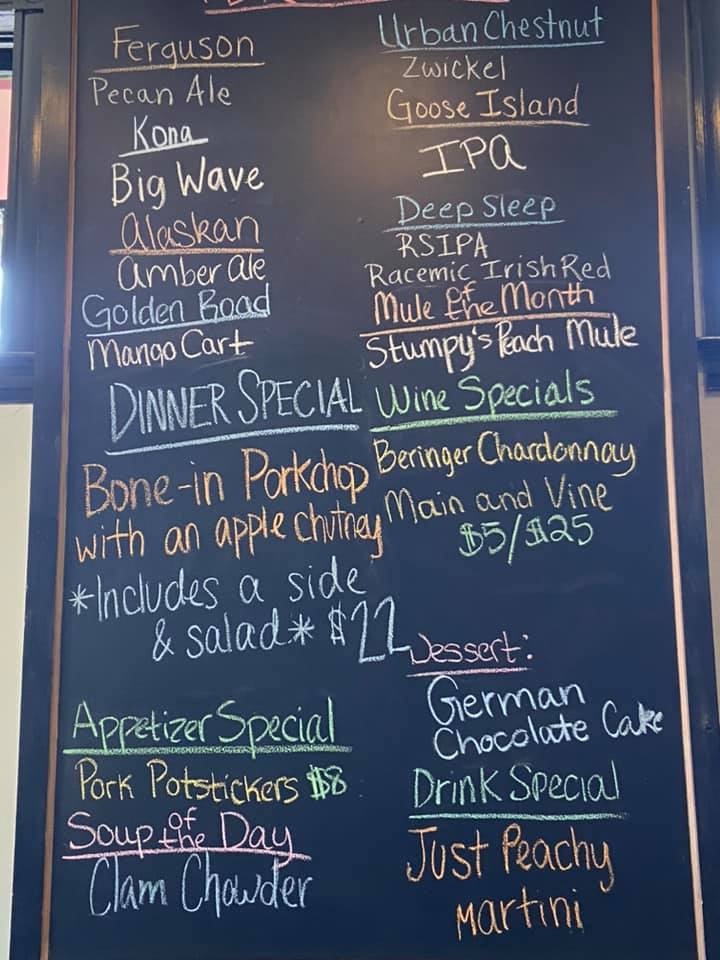 Ferguson
Pecan Ale
Kona
Big Wave
Alaskan
Amber Ale
Golden Road
Mango Cart
DINNER SPECIAL
Bone-in Porkchop
with an apple chutney
*Includes a side
& salad* $22
Appetizer Special
Pork Potstickers $8
Soup of the Day
Clam Chowder
Urban Chestnut
Zwickel
Goose Island
IPA
Deep Sleep
RSIPA
Racemic Irish Red
Mule of the Month
Stumpy's Peach Mule
Wine Specials
Beringer Chardonnay
Main and Vine
$5/$25
Dessert:
German
Chocolate Cake
Drink Special
Just Peachy
Martini